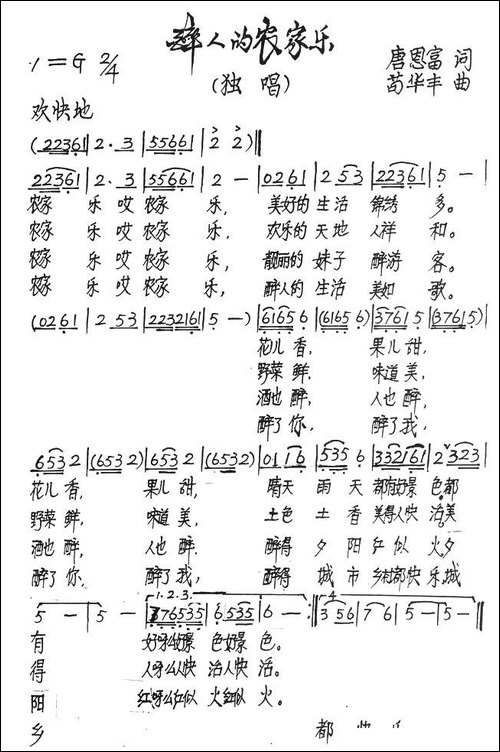 醉人的农家乐
1=G 2/4
唐恩富 词
(独 唱)
苟华丰 曲
欢快地
(22361|2·3|55661|2 2)‖
22361|2·3|55661|2 -|0261|2 53|22361|5 -|
农家 乐 哎 农家 乐, 美好的 生活 锦绣 多。
农家 乐 哎 农家 乐, 欢乐的 天地 人祥 和。
农家 乐 哎 农家 乐, 靓丽的 妹子 醉游 客。
农家 乐 哎 农家 乐, 醉人的 生活 美如 歌。
(0261|2 53|2232161|5 -)|6165 6|(6165 6)|3761 5|(3761 5)|
花儿 香, 果儿 甜,
野菜 鲜, 味道 美,
酒也 醉, 人也 醉,
醉了 你, 醉了 我,
653 2|(653 2)|653 2|(653 2)|01 16|535 6|332161|2 323|
花儿 香, 果儿 甜, 晴天 雨 天 都有好景 色都
野菜 鲜, 味道 美, 土色 土 香 美得人快 活美
酒也 醉, 人也 醉 醉得 夕 阳 红 似 火夕
醉了 你, 醉了 我, 醉得 城 市 乡村都快 乐,城
5 -|5 -|1.2.3. 776535|6 535|6 -:‖4 3 56|7 6|5 -|5 -|
有 好呀么好景 色好景 色。
得 人呀么人快 活人快 活。
阳 红呀么红似 火红似 火。
乡 都 快 乐